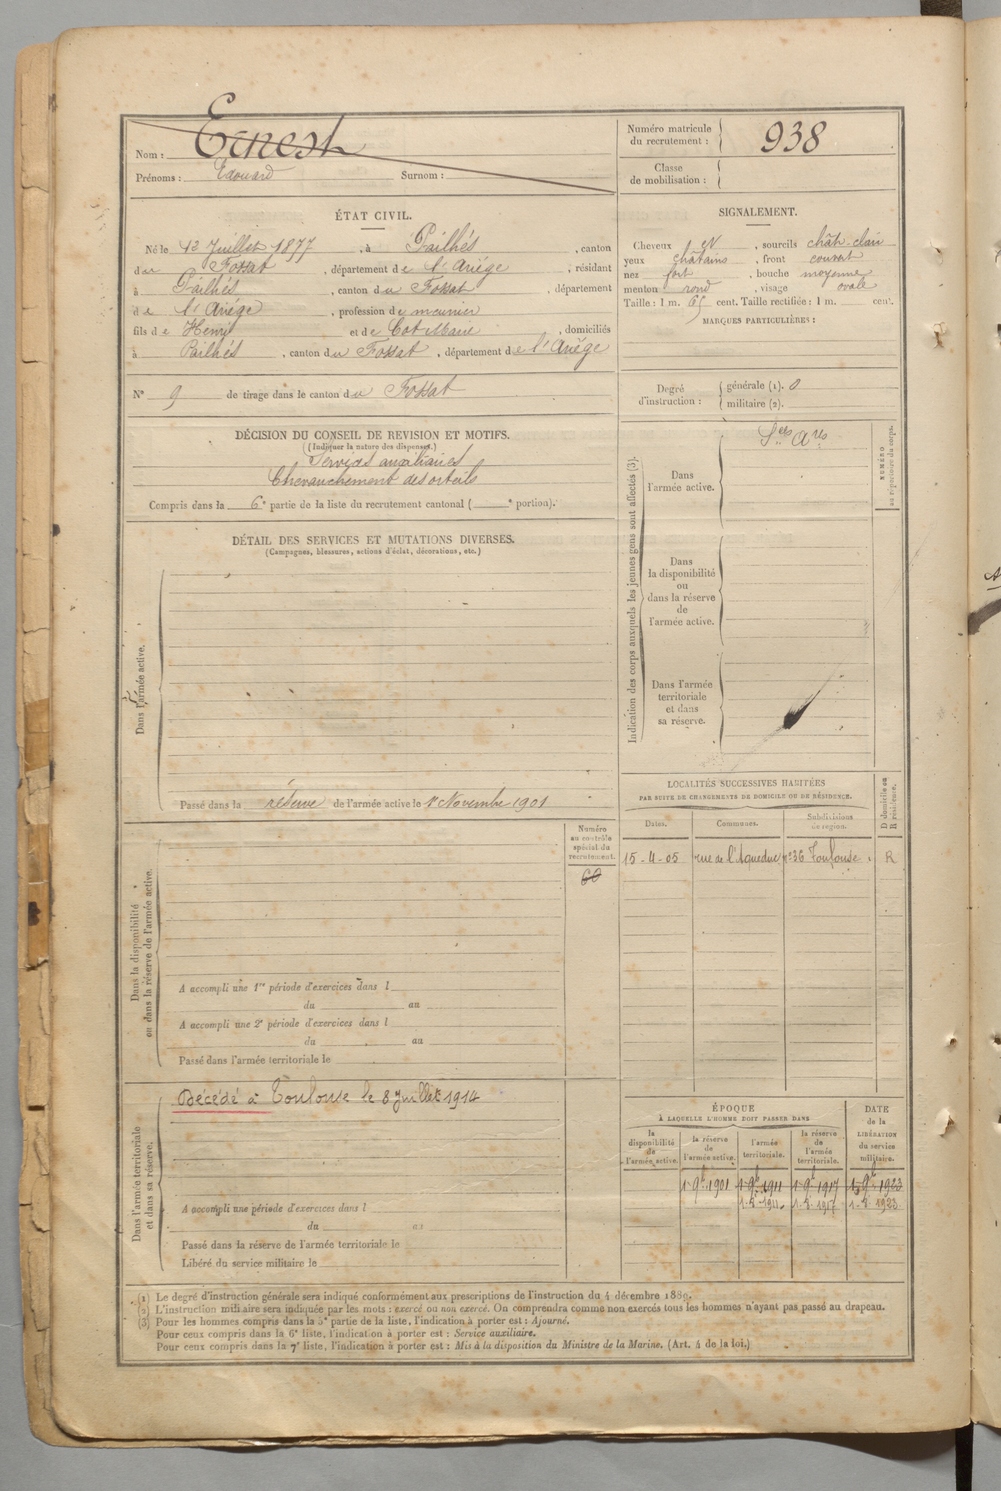 Nom : Ernest
Prénoms : Edouard Surnom :
Numéro matricule du recrutement : 938
Classe de mobilisation :
ÉTAT CIVIL.
Né le 12 Juillet 1877, à Pailhés, canton
du Fossat, département de l'Ariége, résidant
à Pailhés, canton du Fossat, département
de l'Ariége, profession de meunier
fils de Henry et de Cot Marie, domiciliés
à Pailhés, canton du Fossat, département de l'Ariége
N° 9 de tirage dans le canton du Fossat
SIGNALEMENT.
Cheveux N, sourcils chât-clair
yeux châtains, front couvert
nez fort, bouche moyenne
menton rond, visage ovale
Taille : 1 m. 65 cent. Taille rectifiée : 1 m. cent.
MARQUES PARTICULIÈRES :
Degré d'instruction : générale (1). 0
militaire (2).
DÉCISION DU CONSEIL DE REVISION ET MOTIFS.
(Indiquer la nature des dispenses.)
Services auxiliaires
Chevauchement des orteils
Compris dans la 6e partie de la liste du recrutement cantonal ( e portion).
DÉTAIL DES SERVICES ET MUTATIONS DIVERSES.
(Campagnes, blessures, actions d'éclat, décorations, etc.)
Dans l'armée active.
Passé dans la réserve de l'armée active le 1er Novembre 1901
Indication des corps auxquels les jeunes gens sont affectés (3).
Dans l'armée active.
Sces Ares
NUMÉRO au répertoire du corps.
Dans la disponibilité ou dans la réserve de l'armée active.
Dans l'armée territoriale et dans sa réserve.
LOCALITÉS SUCCESSIVES HABITÉES
PAR SUITE DE CHANGEMENTS DE DOMICILE OU DE RÉSIDENCE.
Dates. Communes. Subdivisions de région. D domicile ou R résidence.
15-4-05 rue de l'Aqueduc n° 36 Toulouse. R
Dans la disponibilité ou dans la réserve de l'armée active.
Numéro au contrôle spécial du recrutement.
60
A accompli une 1re période d'exercices dans l
du au
A accompli une 2e période d'exercices dans l
du au
Passé dans l'armée territoriale le
Dans l'armée territoriale et dans sa réserve.
Décédé à Toulouse le 8 Juillet 1914
A accompli une période d'exercices dans l
du au
Passé dans la réserve de l'armée territoriale le
Libéré du service militaire le
ÉPOQUE
À LAQUELLE L'HOMME DOIT PASSER DANS
DATE de la LIBÉRATION du service militaire.
la disponibilité de l'armée active. la réserve de l'armée active. l'armée territoriale. la réserve de l'armée territoriale.
1 9e 1901 1 9e 1911 1 9e 1917 1 9e 1923
1-8-1911. 1-8-1917 1-8-1923
(1) Le degré d'instruction générale sera indiqué conformément aux prescriptions de l'instruction du 4 décembre 1889.
(2) L'instruction militaire sera indiquée par les mots : exercé ou non exercé. On comprendra comme non exercés tous les hommes n'ayant pas passé au drapeau.
(3) Pour les hommes compris dans la 5e partie de la liste, l'indication à porter est : Ajourné.
Pour ceux compris dans la 6e liste, l'indication à porter est : Service auxiliaire.
Pour ceux compris dans la 7e liste, l'indication à porter est : Mis à la disposition du Ministre de la Marine. (Art. 4 de la loi.)